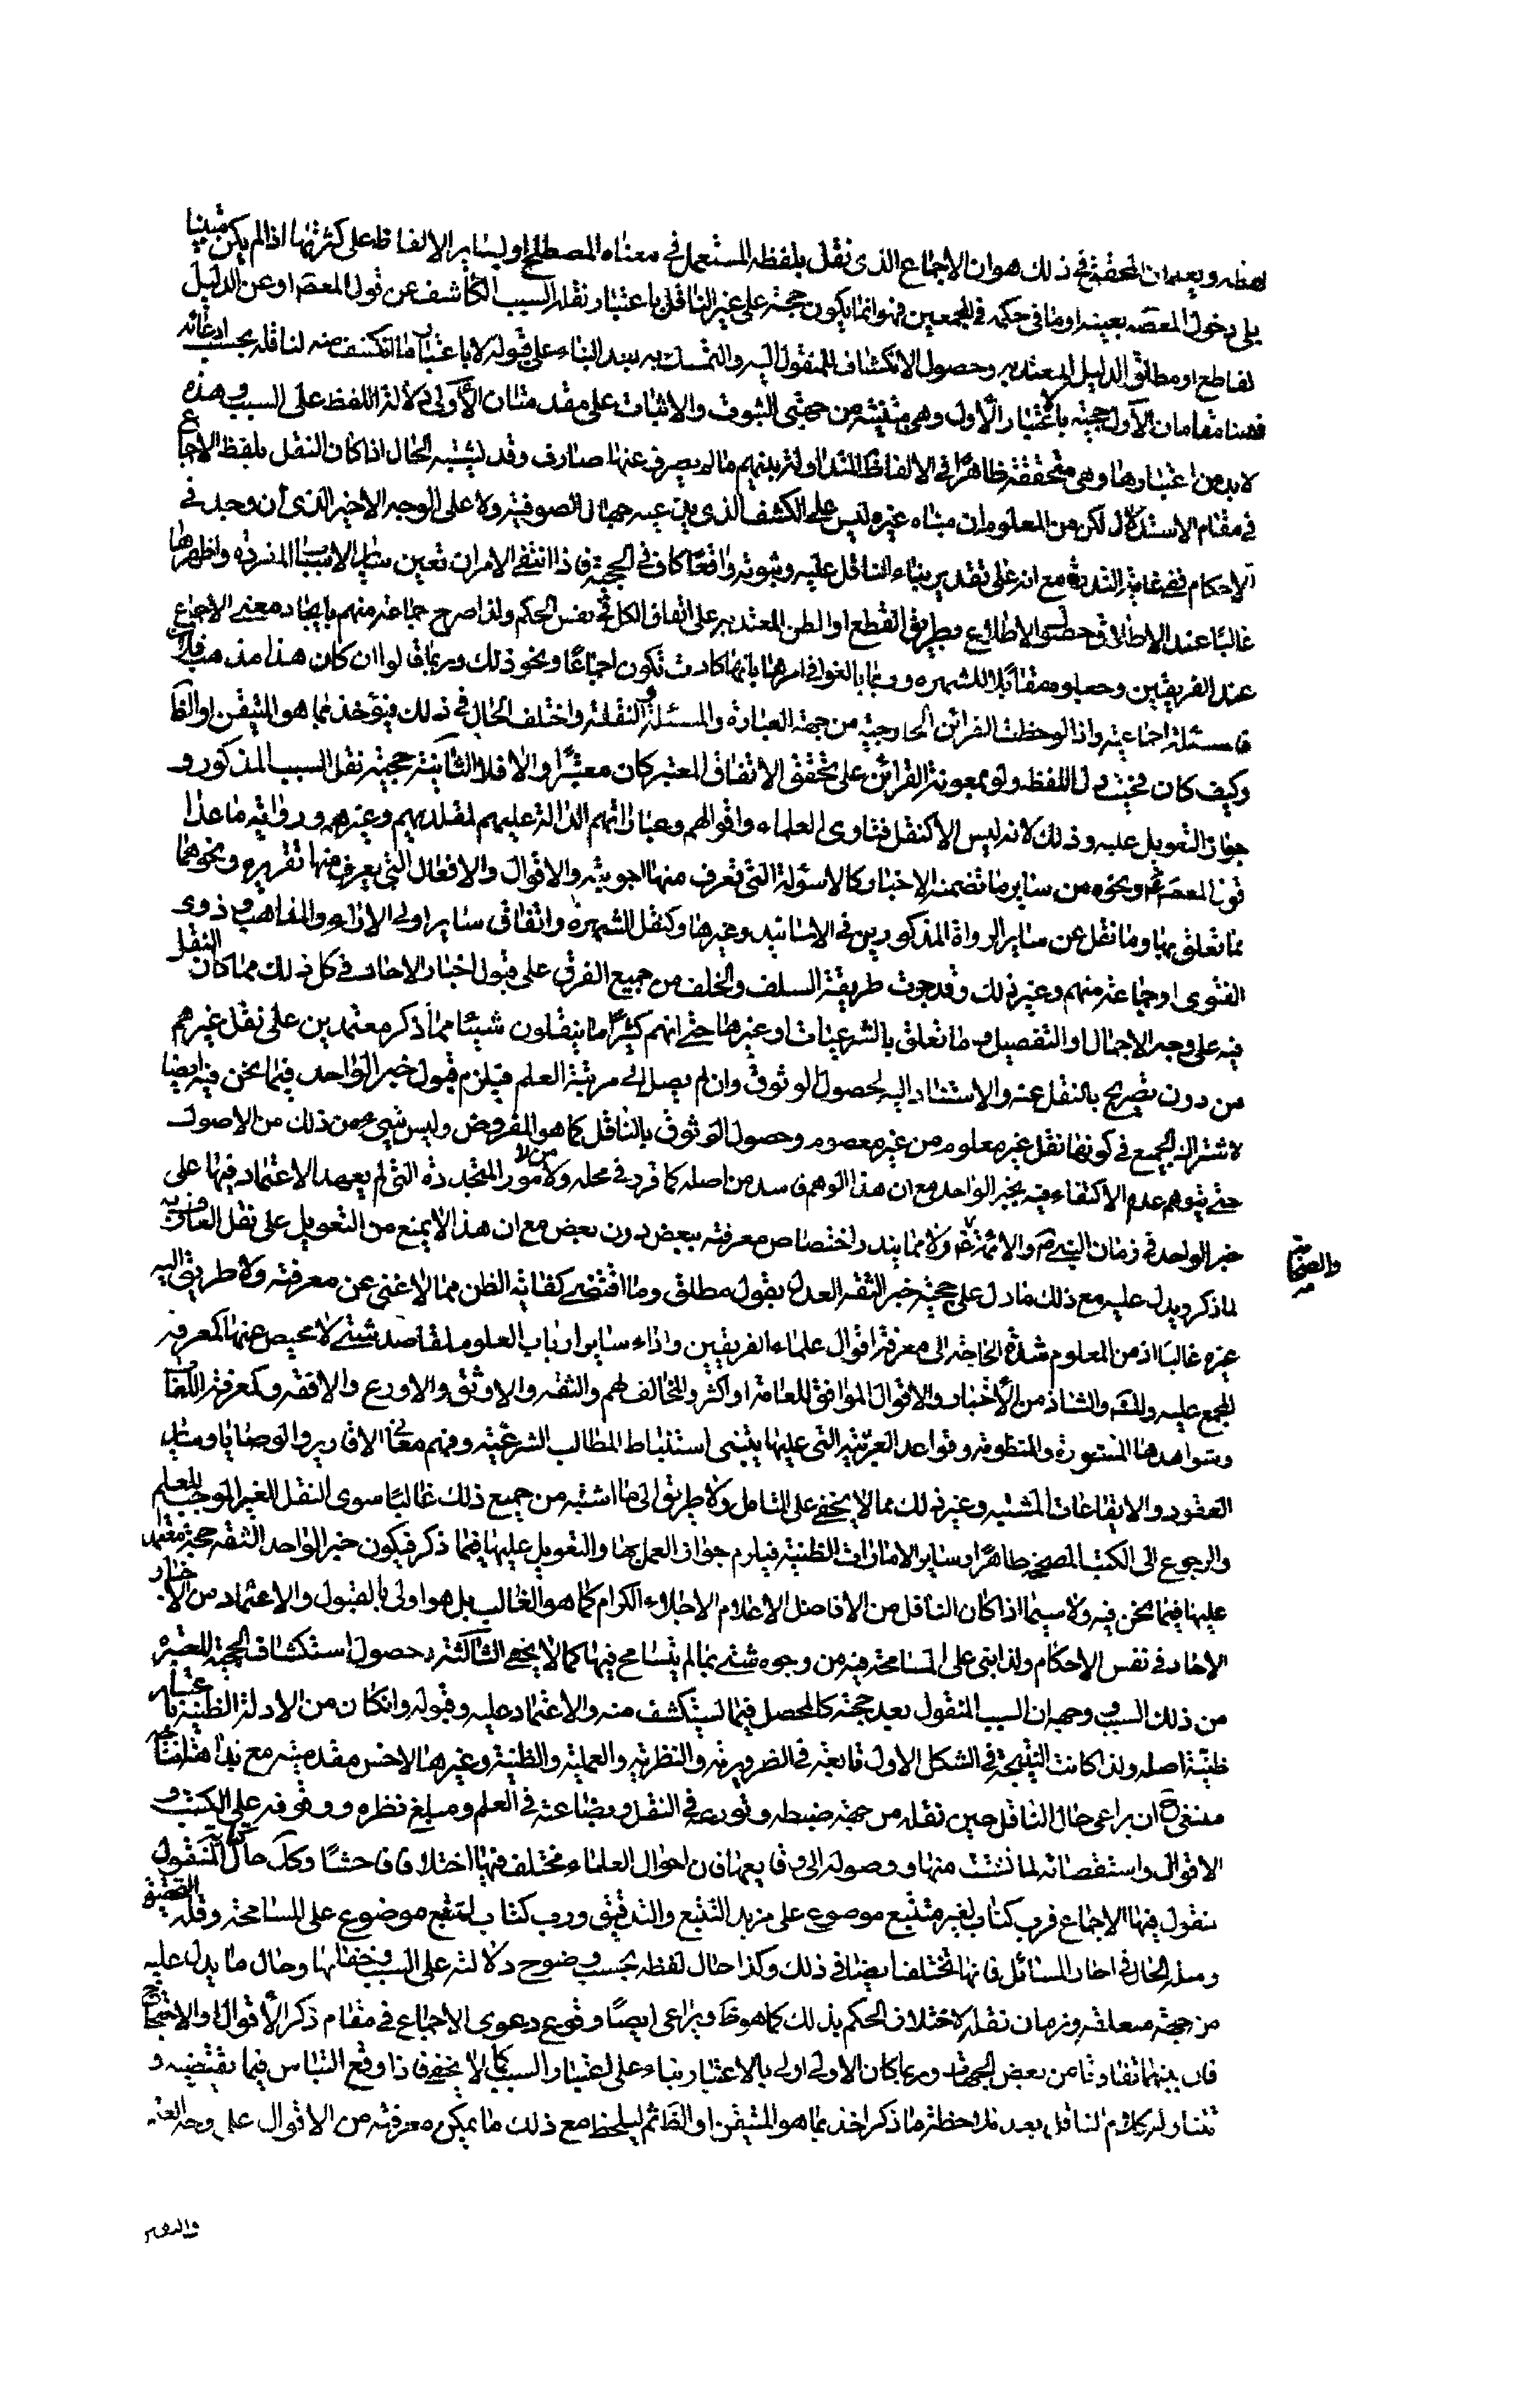 لفظه ويعلم ان المحقق في ذلك هو ان الاجماع الذى نقل بلفظه المستعمل في معناه المصطلح او بساير الالفاظ على كثرتها اذا لم يكن مبنيا
على دخول المعصوم بعينه او ما في حكمه في المجمعين فهو انما يكون حجة على غير الناقل باعتبار نقله السبب الكاشف عن قول المعصوم او عن الدليل
لقاطع او مطلق الدليل المعتد به وحصول الانكشاف للمنقول اليه والتمسك به بعد البناء على قبوله لا باعتبار ما انكشف منه لناقله بحسب ادعائه
فهنا مقامان الاول حجيته بالاعتبار الاول وهى مبتنية من جهتى الثبوت والاثبات على مقدمتان الاولى دلالة اللفظ على السبب وهذه
لابد من اعتبارها وهى متحققة ظاهرا في الالفاظ المتداولة بينهم ما لم يصرف عنها صارف وقد يشتبه الحال اذا كان النقل بلفظ الاجماع
في مقام الاستدلال لكن من المعلوم ان مبناه غيره ليس على الكشف الذى يدعيه جهال الصوفية ولا على الوجه الاخير الذى ان وجد في
الاحكام ففى غاية الندرة مع انه على تقدير بناء الناقل عليه وثبوته واقعا كاف في الحجية فاذا انتفى الامران تعين ساير الاسباب المقررة واظهرها
غالبا عند الاطلاق حصول الاطلاع بطريق القطع او الظن المعتد به على اتفاق الكل في نفس الحكم ولذا صرح جماعة منهم باتحاد معنى الاجماع
عند الفريقين وجعلوه مقابلا للشهرة وربما بالغوا في امرها بانها كادت تكون اجماعا ونحو ذلك وربما قالوا ان كان هذا مذهب فلان
فالمسئلة اجماعية واذا لوحظت القرائن الخارجية من جهة العبارة والمسئلة والنقلة واختلف الحال في ذلك فيؤخذ بما هو المتيقن او الظا
وكيف كان فحيث دل اللفظ ولو بمعونة القرائن على تحقق الاتفاق المعتبر كان معتبرا والا فلا الثانية حجية نقل السبب المذكور و
جواز التعويل عليه وذلك لانه ليس الا كنقل فتاوى العلماء واقوالهم وعباراتهم الدالة عليهم لمقلديهم وغيرهم ورواية ما عدا
قول المعصوم ع ونحوه من ساير ما تضمنه الاخبار كالاسئولة التى تعرف منها اجوبته والاقوال والافعال التى يعرف منها تقريره ونحوهما
مما تعلق بها وما نقل عن ساير الرواة المذكورين في الاسانيد وغيرها وكنقل الشهرة واتفاق ساير اولى الاراء والمذاهب وذوى
الفتوى او جماعة منهم وغير ذلك وقد جرت طريقة السلف والخلف من جميع الفرق على قبول اخبار الاحاد في كل ذلك مما كان النقل
فيه على وجه الاجمال او التفصيل وما تعلق بالشرعيات او غيرها حتى انهم كثيرا ما ينقلون شيئا مما ذكر معتمدين على نقل غيرهم
من دون تصريح بالنقل عنه والاستناد اليه لحصول الوثوق وان لم يصل الى مرتبة العلم فيلزم قبول خبر الواحد فيما نحن فيه ايضا
لاشتراك الجميع في كونها نقل غير معلوم من غير معصوم وحصول الوثوق بالناقل كما هو المفروض وليس شىء من ذلك من الاصول
حتى يتوهم عدم الاكتفاء فيه بخبر الواحد مع ان هذا الوهم فاسد من اصله كما قرر في محله ولا من الامور المتجددة التى لم يعهد الاعتماد فيها على
خبر الواحد في زمان النبى ص والائمة ع ولا مما يندر اختصاص معرفته ببعض دون بعض مع ان هذا لا يمنع من التعويل على نقل العارف به
والصحابة
منه
لما ذكر ويدل عليه مع ذلك ما دل على حجية خبر الثقة العدل بقول مطلق وما اقتضى كفاية الظن مما لا غنى عن معرفته ولا طريق اليه
غيره غالبا اذ من المعلوم شدة الحاجة الى معرفة اقوال علماء الفريقين واراء ساير ارباب العلوم لمقاصد شتى لا محيص عنها كمعرفة
المجمع عليه والمشهور والشاذ من الاخبار والاقوال الموافق للعامة او اكثرهم والمخالف لهم والثقة والاوثق والاورع والافقه وكمعرفة اللغات
وشواهدها المنثورة والمنظومة وقواعد العربية التى عليها يبتنى استنباط المطالب الشرعية وفهم معانى الاقارير والوصايا وساير
العقود والايقاعات المشتبهة وغير ذلك مما لا يخفى على المتامل ولا طريق الى ما اشتبه من جميع ذلك غالبا سوى النقل الغير الموجب للعلم
والرجوع الى الكتب المصححة ظاهرا وساير الامارات الظنية فيلزم جواز العمل بها والتعويل عليها فيما ذكر فيكون خبر الواحد الثقة حجة معتمدا
عليها فيما نحن فيه ولا سيما اذا كان الناقل من الافاضل الاعلام الاجلاء الكرام كما هو الغالب بل هو اولى بالقبول والاعتماد من الاخبار
الاحاد في نفس الاحكام ولذا ابتنى على المسامحة فيه من وجوه شتى بما لم يتسامح فيها كما لا يخفى الثالثة حصول استكشاف الحجة المعتبرة
من ذلك السبب ووجهه ان السبب المنقول بعد حجته كالمحصل فيما يستكشف منه والاعتماد عليه وقبوله وان كان من الادلة الظنية باعتبار
ظنية اصله ولذا كانت النتيجة في الشكل الاول تابعة في الضرورية والنظرية والعملية والظنية وغيرها الاخس مقدمتيه مع بداهة انتاجه
فينبغى ح ان يراعى حال الناقل حين نقله من جهة ضبطه وتورعه في النقل وبضاعته في العلم ومبلغ نظره ووقوفه على الكتب و
الاقوال واستقصائه لما تشتت منها ووصوله الى وقايعها فان احوال العلماء مختلف فيها اختلافا فاحشا وكذلك حال الكتب المنقول
منقول فيها الاجماع فرب كتاب لغير متتبع موضوع على مزيد التتبع والتدقيق ورب كتاب لمتتبع موضوع على المسامحة وقلة التحقيق
ومثله الحال في احاد المسائل فانها تختلف ايضا في ذلك وكذا حال لفظه بحسب وضوح دلالته على السبب وخفائها وحال ما يدل عليه
من جهة متعلقه وزمان نقله لاختلاف الحكم بذلك كما هو ظ ويراعى ايضا وقوع دعوى الاجماع في مقام ذكر الاقوال او الاحتجاج
فان بينهما تفاوتا من بعض الجهات وربما كان الاولى اولى بالاعتبار بناء على اعتبار السبب كما لا يخفى فاذا وقع التباس فيما يقتضيه و
تتناوله كلام الناقل بعد ملاحظة ما ذكر اخذ بما هو المتيقن او الظا ثم ليلحظ مع ذلك ما يمكن معرفته من الاقوال على وجه العلم